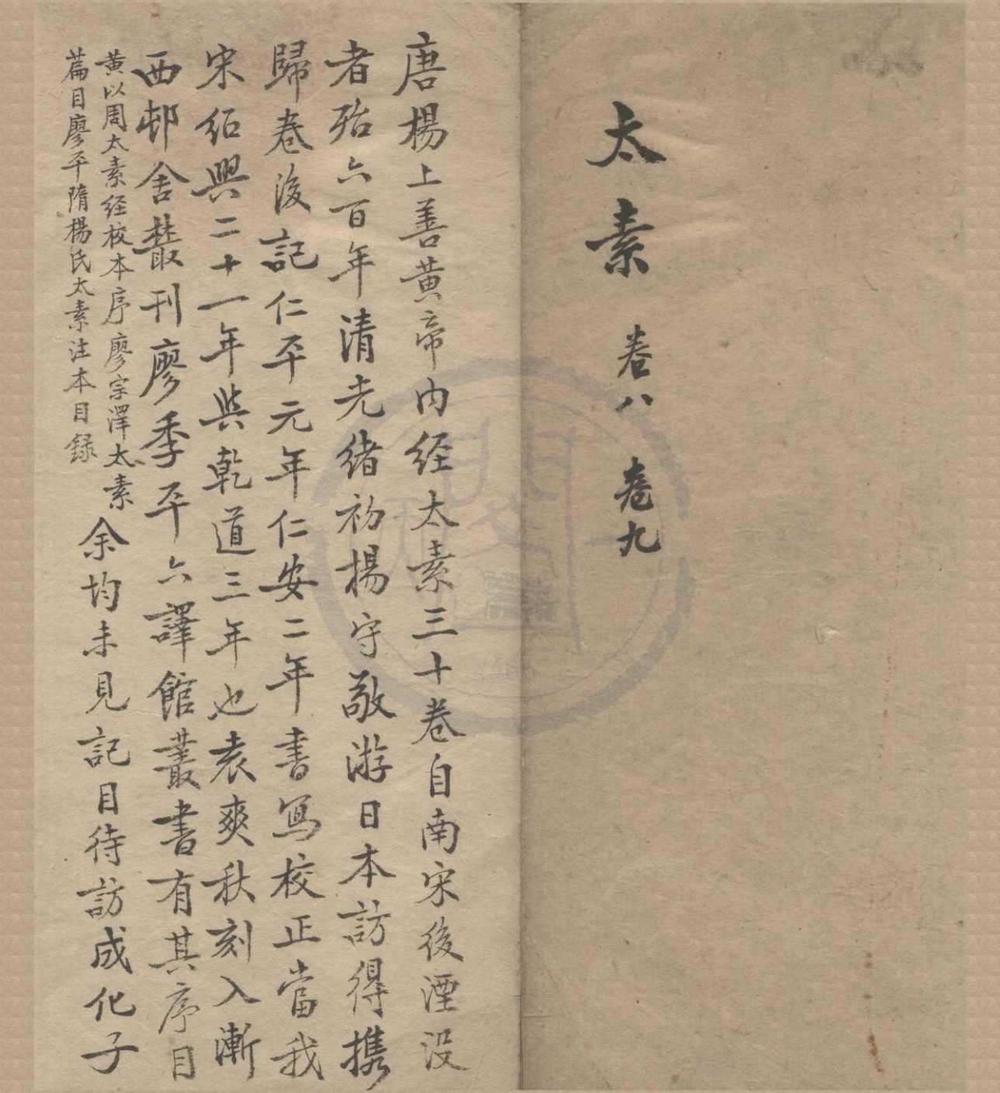 太素 卷八 卷九
唐楊上善黃帝內经太素三十卷自南宋後湮没
者殆六百年清光緒初楊守敬游日本訪得携
歸卷後記仁平元年仁安二年書寫校正當我
宋紹興二十一年與乾道三年也袁爽秋刻入漸
西邨舍叢刊廖季平六譯館叢書有其序目
黃以周太素经校本序廖宗澤太素
篇目廖平隋楊氏太素注本目録
余均未見記目待訪成化子